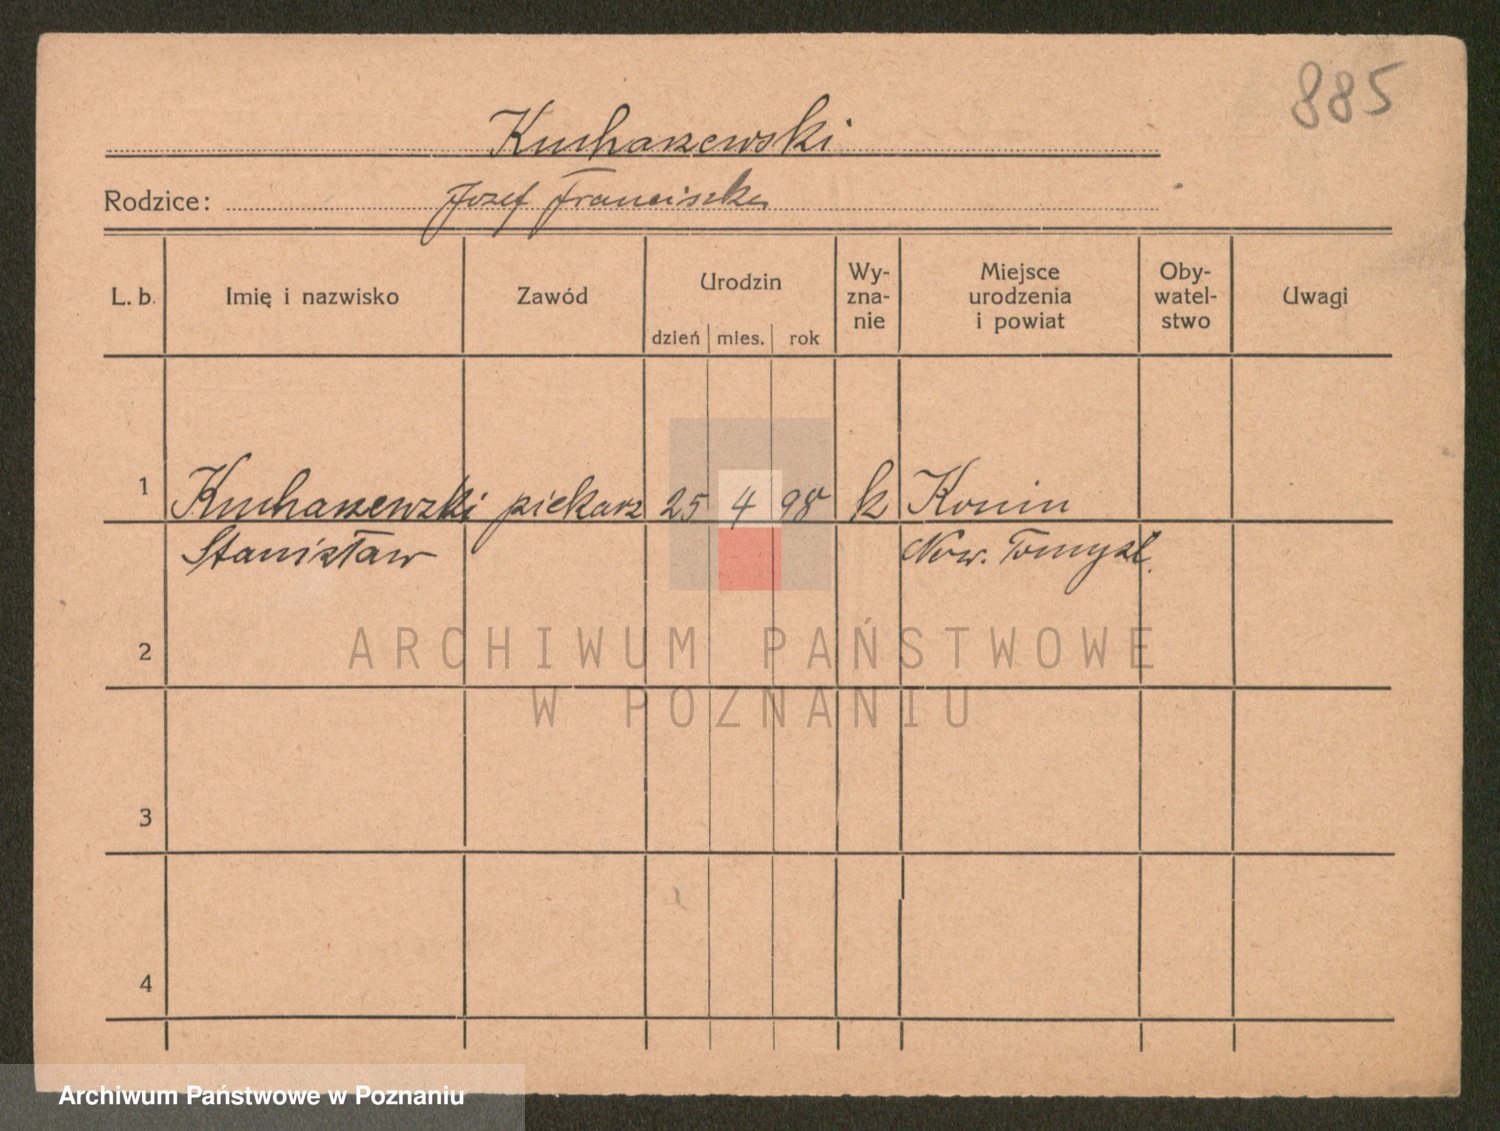 885
Kucharzewski
Rodzice: Jozef Franciszka
L. b. Imię i nazwisko Zawód Urodzin Wy- zna- nie Miejsce urodzenia i powiat Oby- watel- stwo Uwagi
dzień mies. rok
1 Kucharzewski piekarz 25 4 98 k Konin
Stanisław Now. Tomyśl.
2
ARCHIWUM PAŃSTWOWE
W POZNANIU
3
4
Archiwum Państwowe w Poznaniu